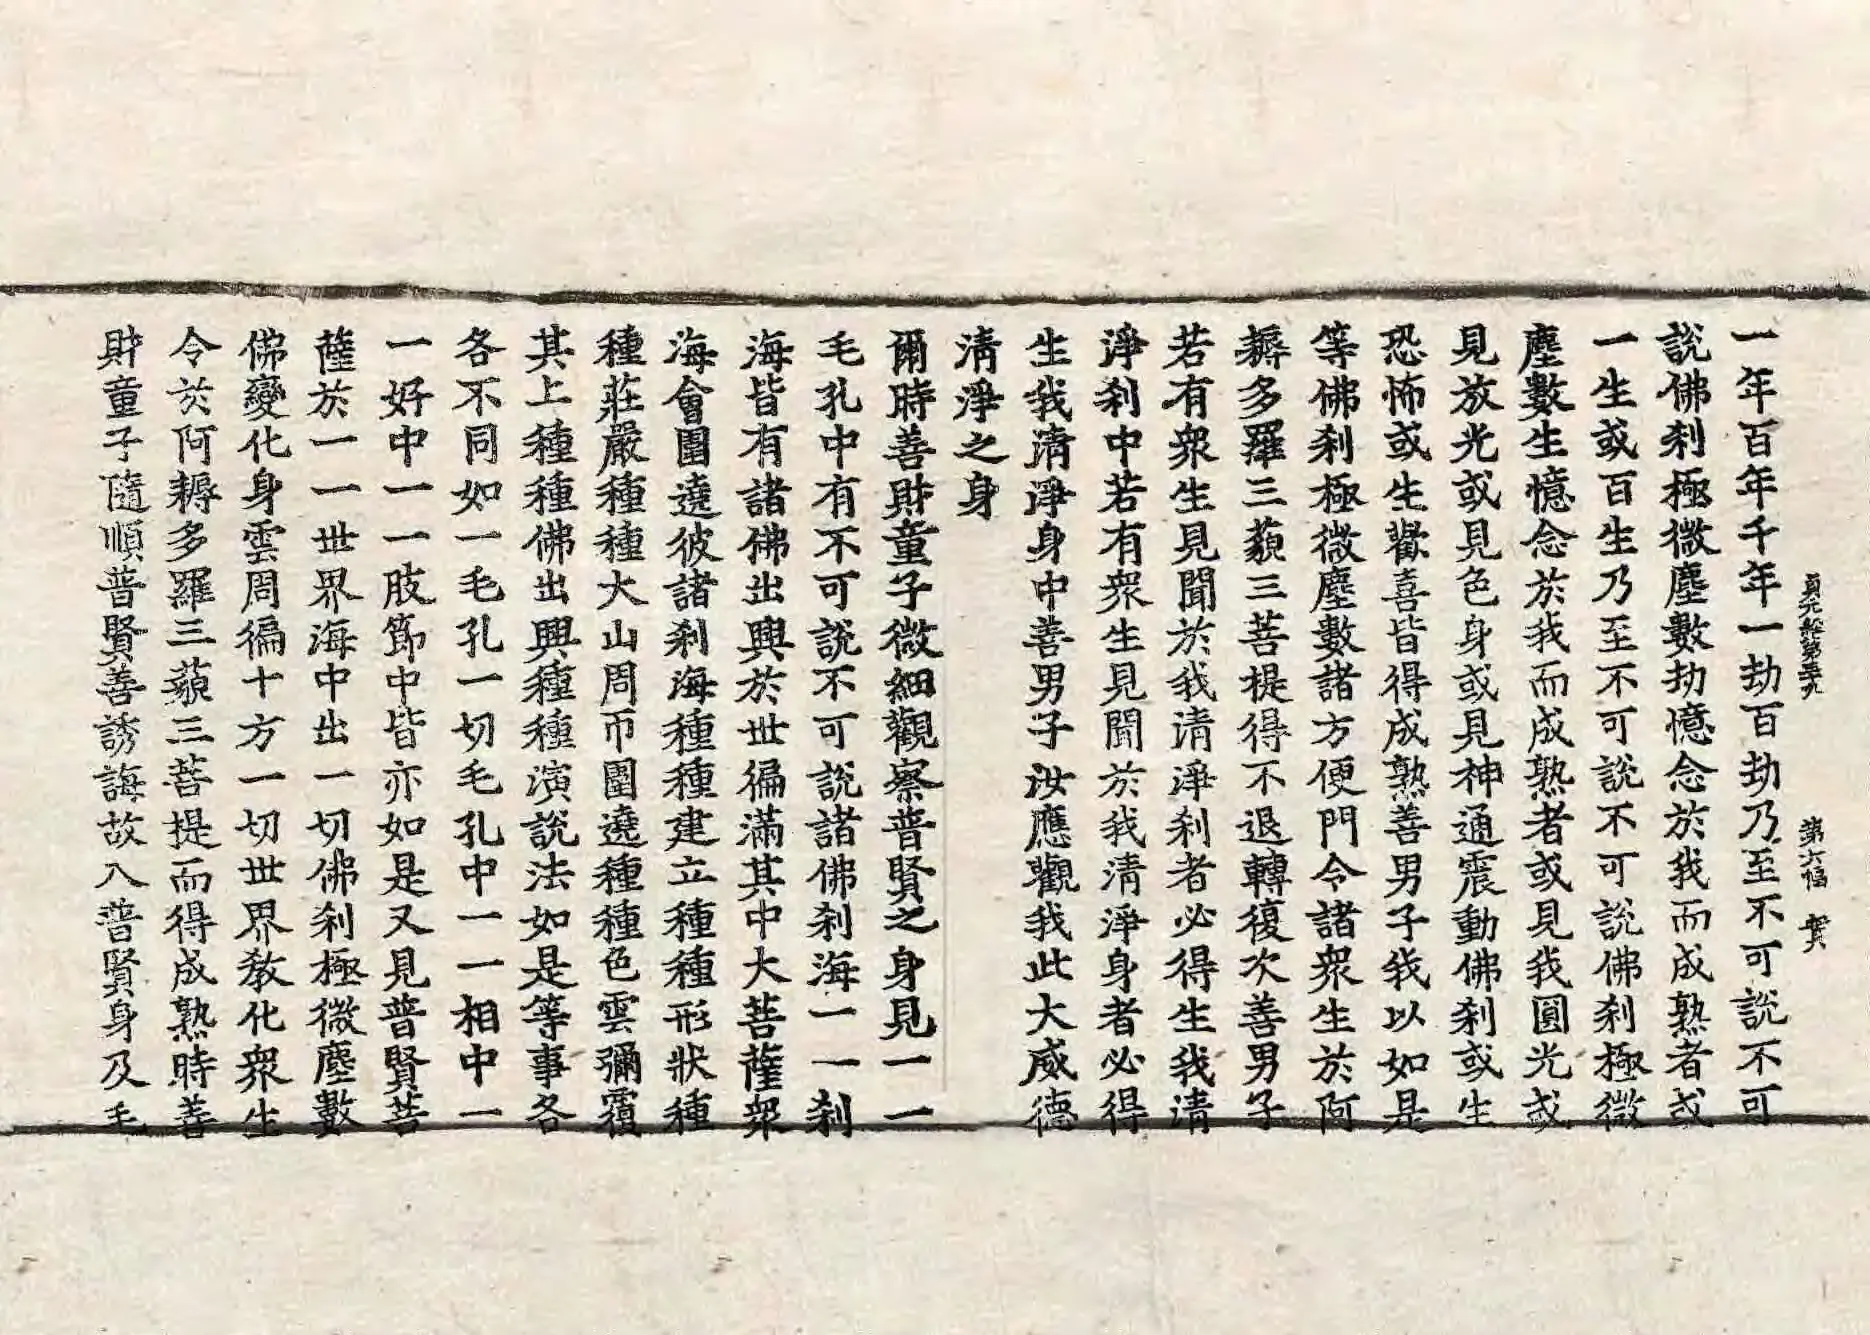 貞元經第三十九 第六幅
一年百年千年一劫百劫乃至不可說不可
說佛刹極微塵數劫憶念於我而成熟者或
一生或百生乃至不可說不可說佛刹極微
塵數生憶念於我而成熟者或見我圓光或
見放光或見色身或見神通震動佛刹或生
恐怖或生歡喜皆得成熟善男子我以如是
等佛刹極微塵數諸方便門令諸衆生於阿
耨多羅三藐三菩提得不退轉復次善男子
若有衆生見聞於我清淨刹者必得生我清
淨刹中若有衆生見聞於我清淨身者必得
生我清淨身中善男子汝應觀我此大威德
清淨之身
爾時善財童子微細觀察普賢之身見一一
毛孔中有不可說不可說諸佛刹海一一刹
海皆有諸佛出興於世徧滿其中大菩薩衆
海會圍遶彼諸刹海種種建立種種形狀種
種莊嚴種種大山周帀圍遶種種色雲彌覆
其上種種佛出興種種演說法如是等事各
各不同如一毛孔一切毛孔中一一相中一
一好中一一肢節中皆亦如是又見普賢菩
薩於一一世界海中出一切佛刹極微塵數
佛變化身雲周徧十方一切世界教化衆生
令於阿耨多羅三藐三菩提而得成熟時善
財童子隨順普賢善誘誨故入普賢身及毛